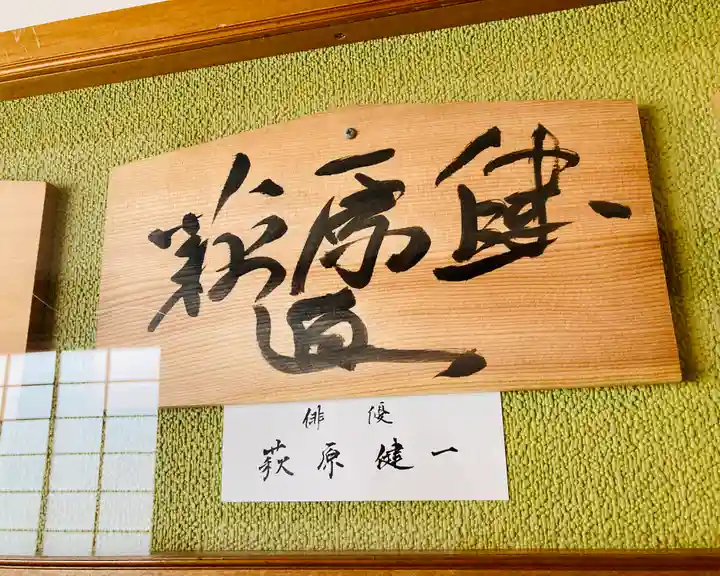 萩原健一
俳優
萩原健一